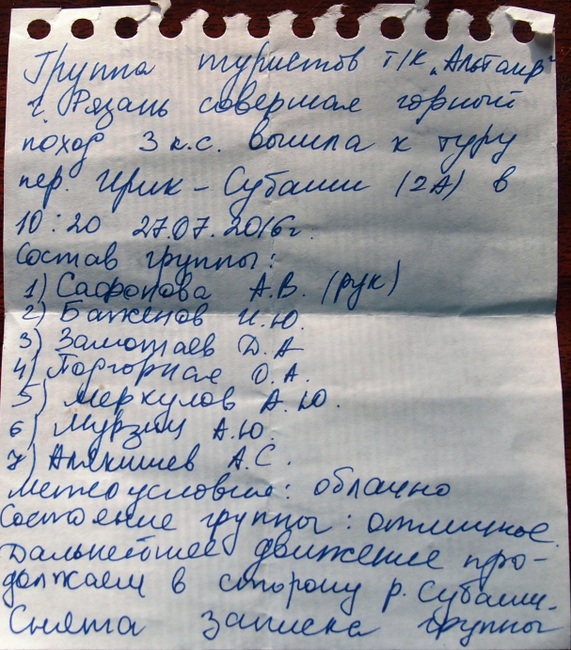 Группа туристов т/к „Альтаир"
г. Рязань совершая горный
поход 3 к.с. вышла к туру
пер. Ирик - Субаши (2А) в
10:20 27.07.2016г.
Состав группы:
1) Сафонова А.В. (рук)
2) Баженов И.Ю.
3) Замотаев Д.А
4) Подгорная О.А.
5) Меркулов А.Ю.
6) Мурзин А.Ю.
7) Алякишев А.С.
метеоусловия: облачно
Состояние группы: отличное.
Дальнейшее движение про-
должаем в сторону р. Субаши.
Снята записка группы